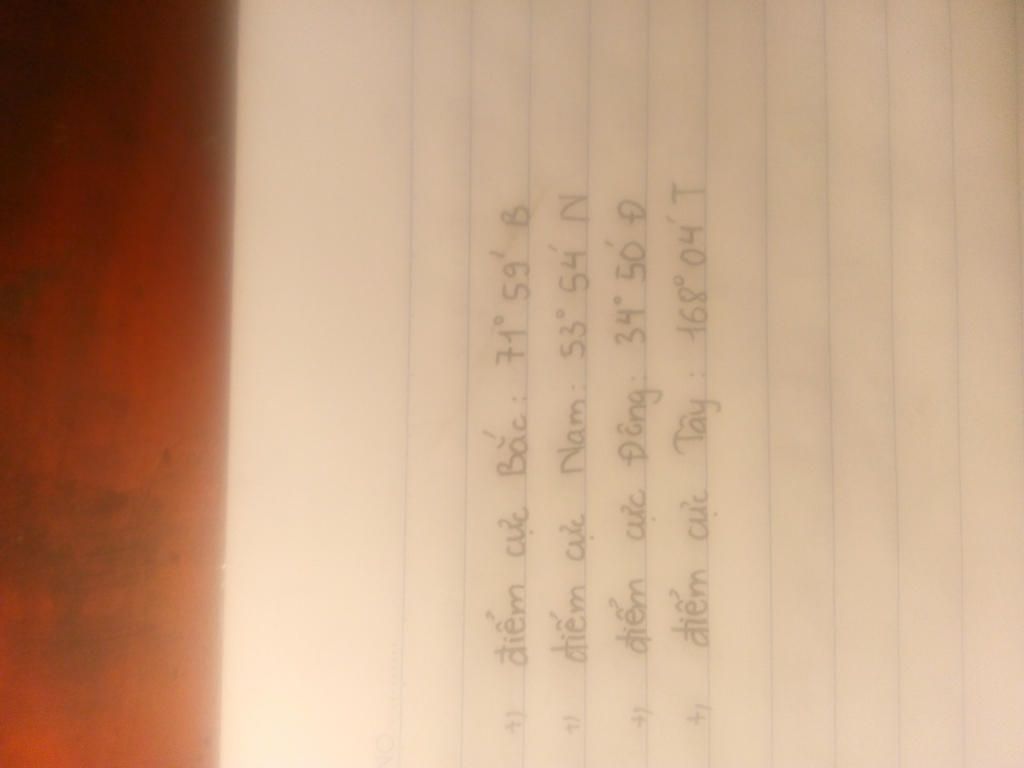 NO
+) điểm cực Bắc : 71° 59' B
+) điểm cực Nam : 53° 54' N
+) điểm cực Đông : 34° 50' Đ
+) điểm cực Tây : 168° 04' T